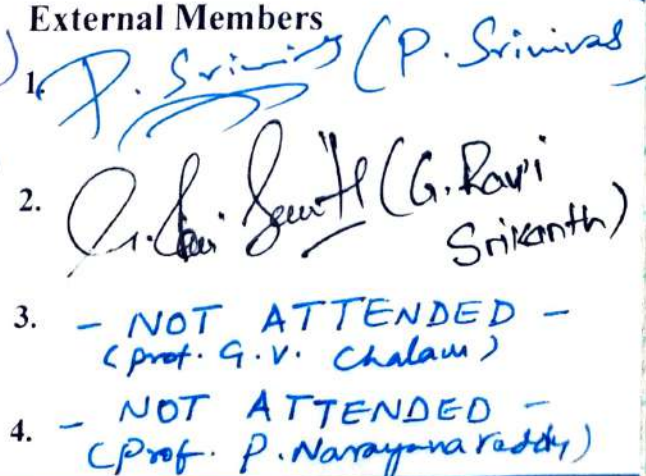 External Members
1. P. Srinivas (P. Srinivas
2. G. Ravi Srikanth (G. Ravi
Srikanth)
3. - NOT ATTENDED -
(Prof. G. V. Chalam)
4. - NOT ATTENDED -
(Prof. P. Narayana reddy)